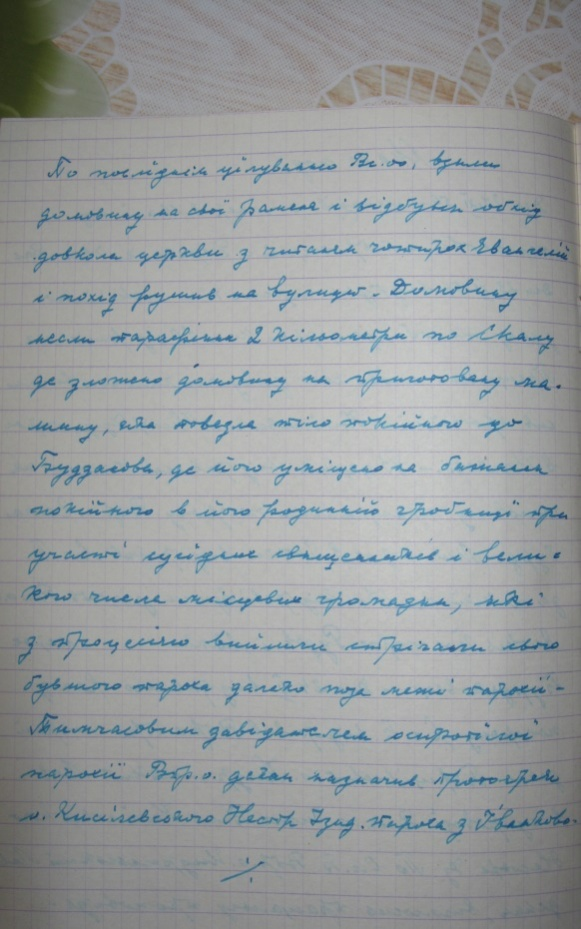 По послїднім цїлуванню Вс.оо, взяли
домовину на свої рамена і відбувся обхід
довкола церкви з читанєм чотирох Євангелій
і похід рушив на вулицю. Домовину
несли парафіяни 2 кільометри по Скалу
де зложено домовину на приготовану ма-
шину, яка повезла тіло покійного до
де його уміщено на бажання
покійного в його родинній гробницї при
участі сусїдних священиків і вели-
кого числа місцевих громадян, які
з процесією вийшли стрічати свого
бувшого пароха далеко поза межі парохії -
Тимчасовим завідателем осиротілої
парохії Впр. о. декан назначив
о. Кисїлевського Нестр пароха з Іванкова.